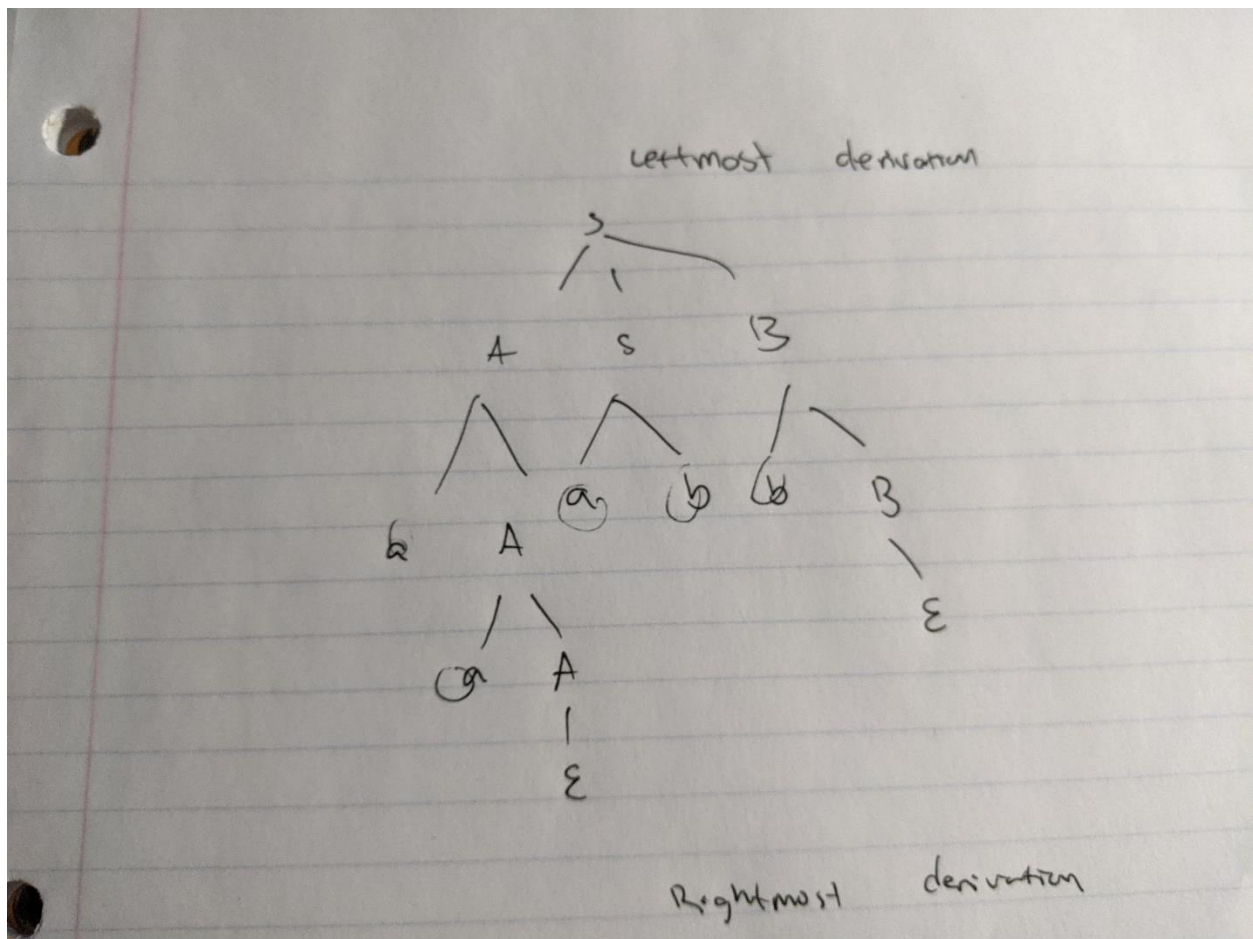 Leftmost derivation
S
A S B
a b b B
b A
ε
a A
ε
Rightmost derivation